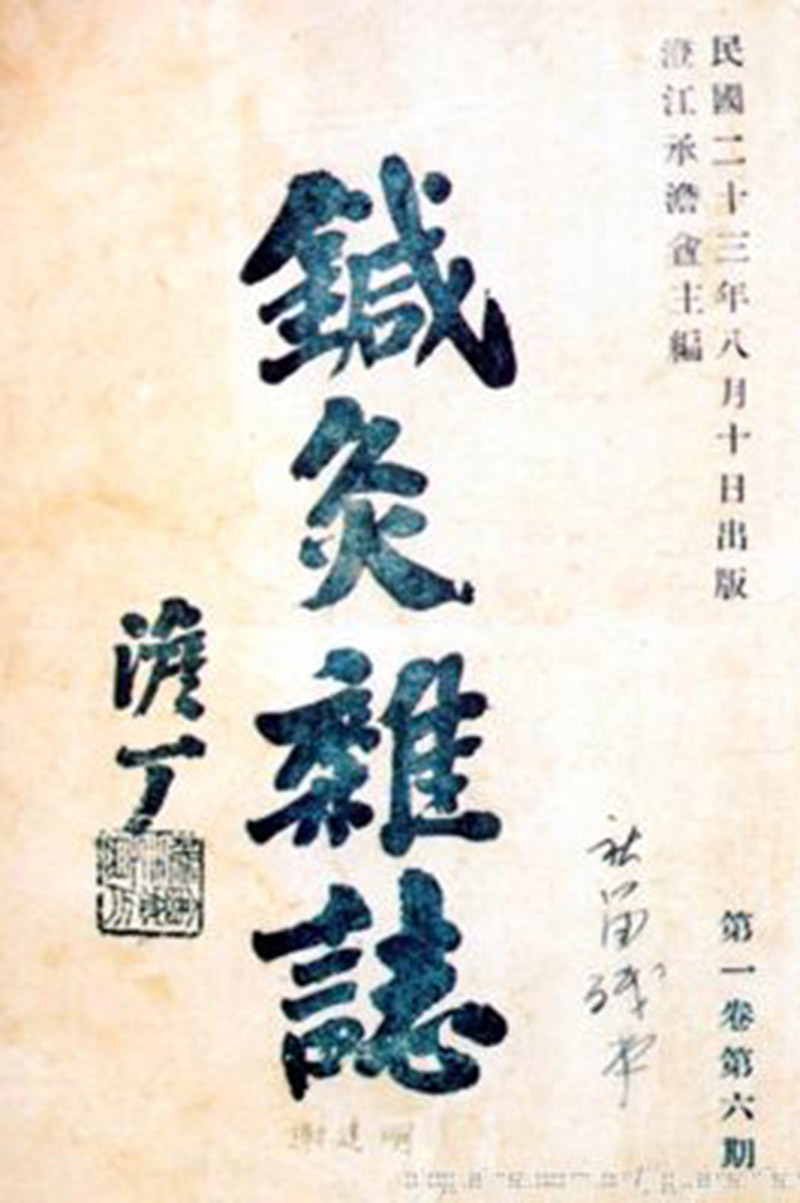 民國二十三年八月十日出版
澄江承澹盦主編
第一卷第六期
鍼灸雜誌
澹丁
謝建明